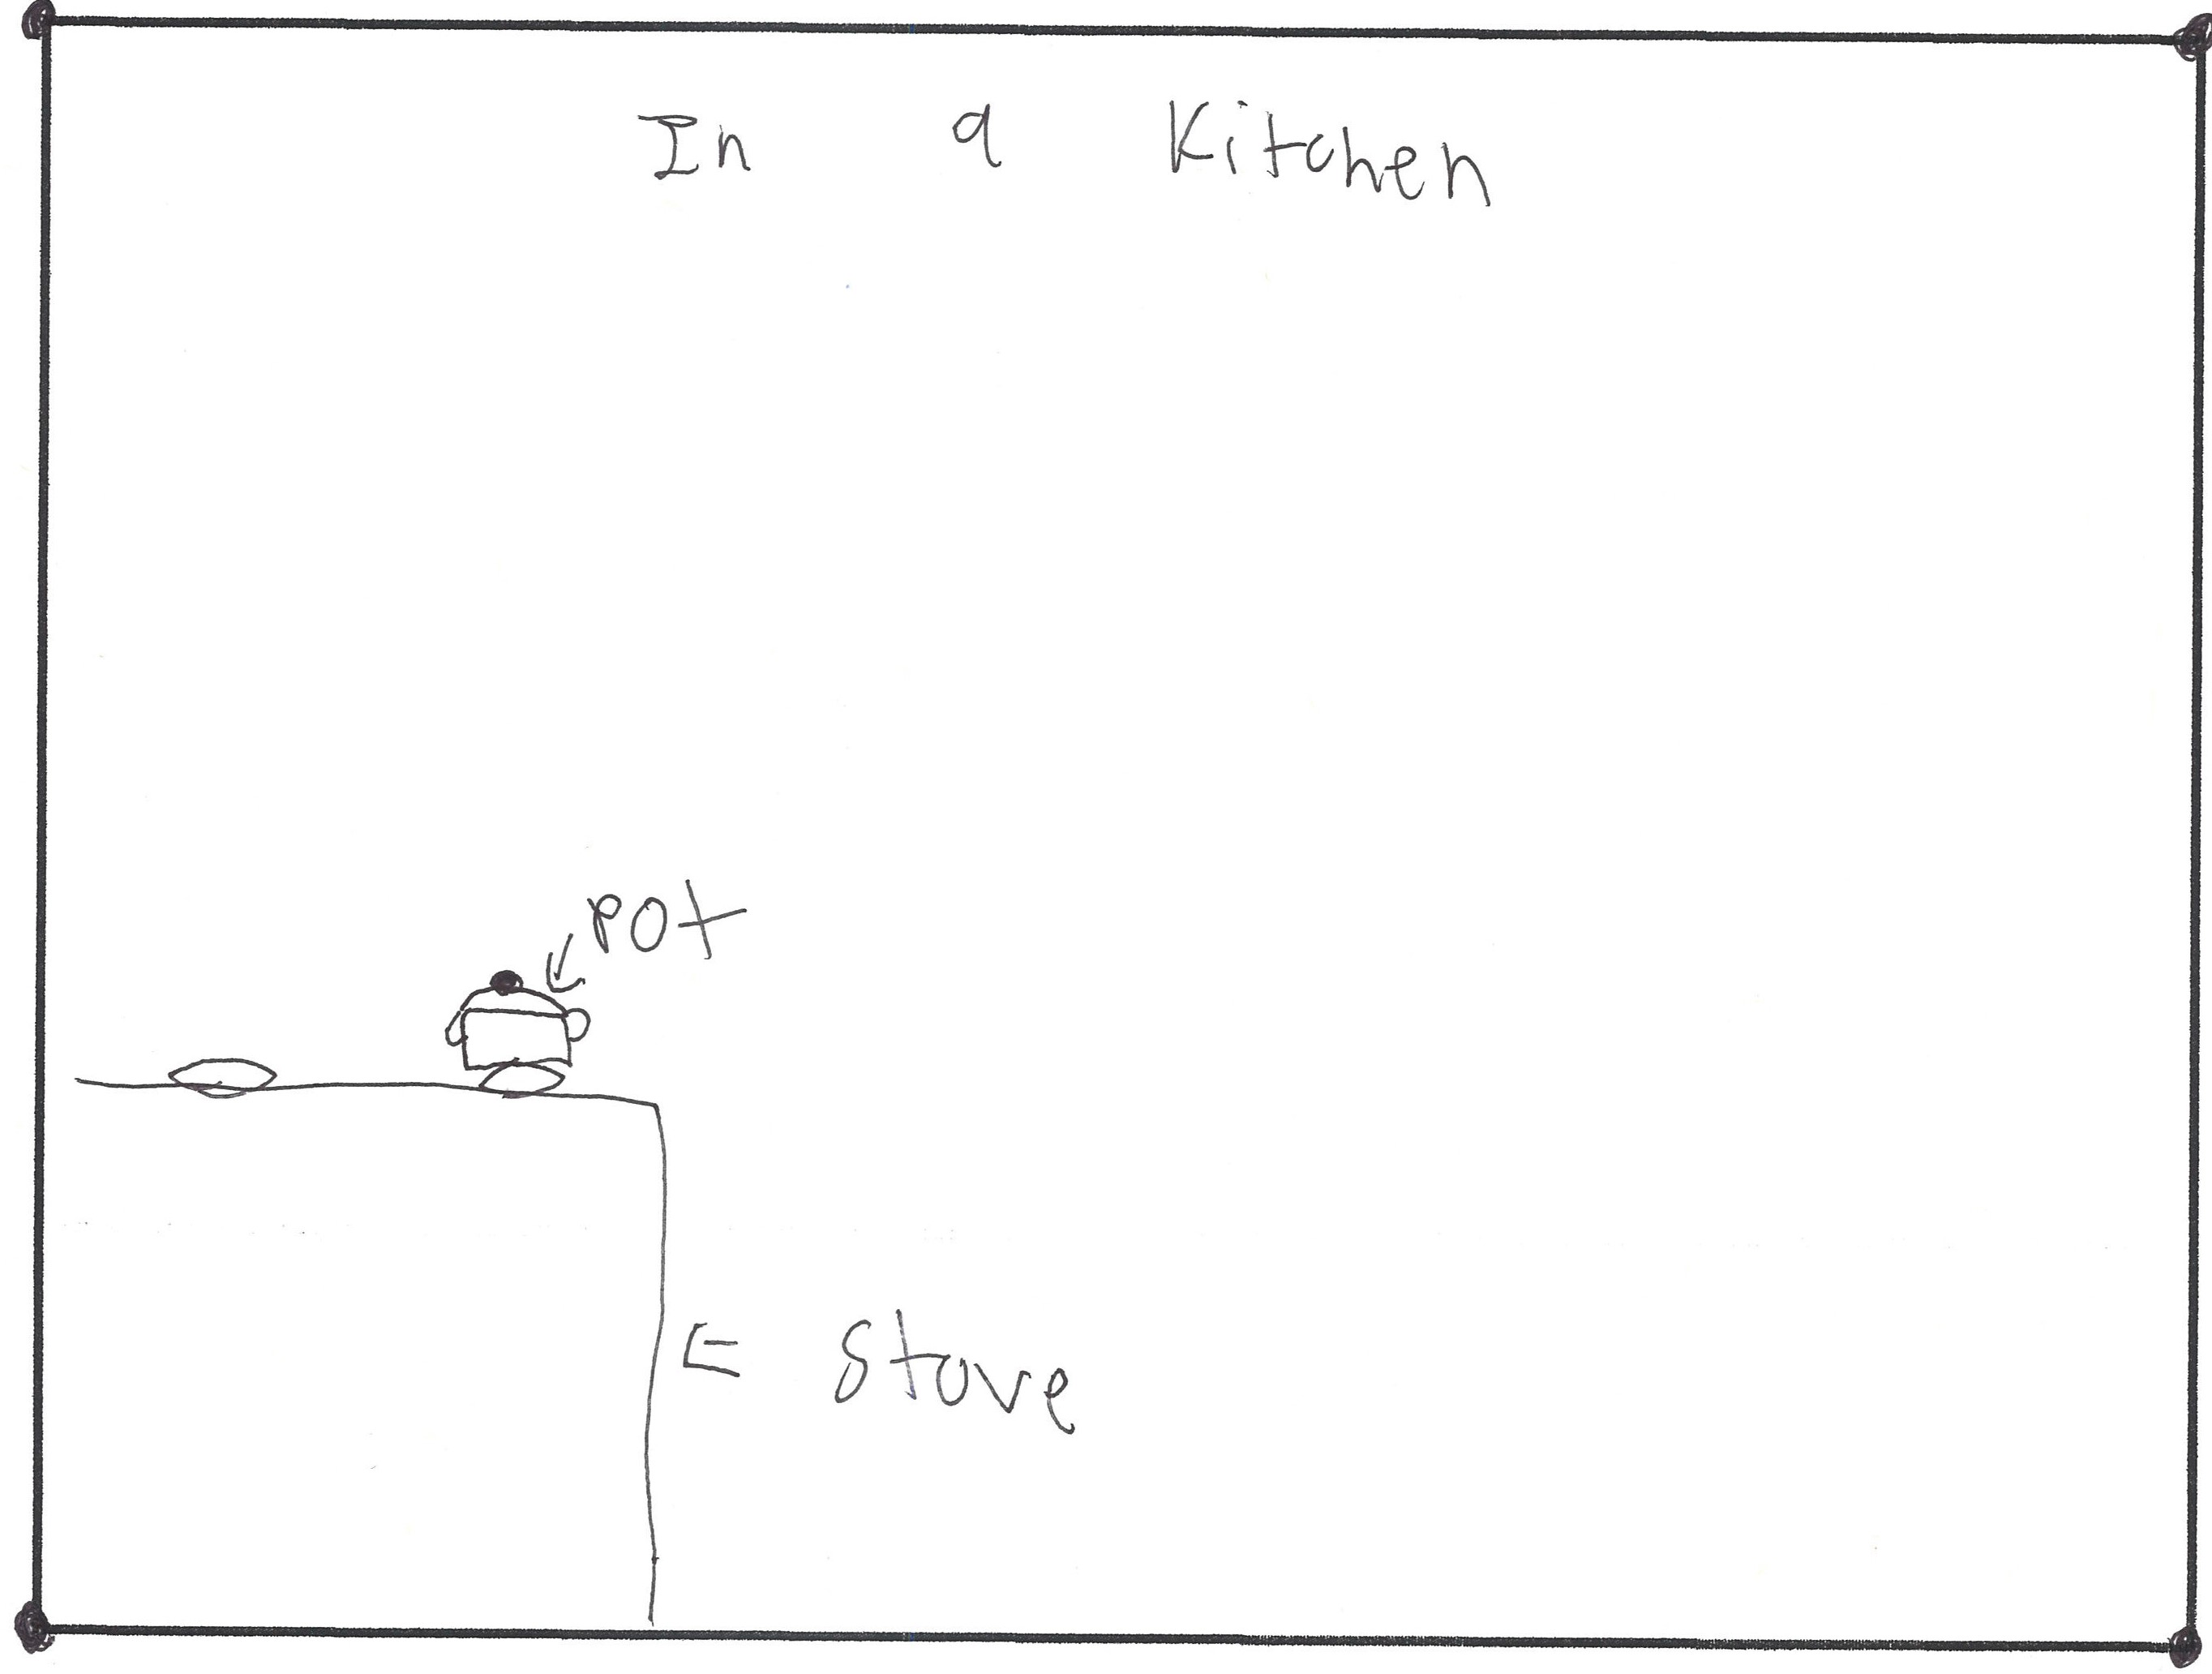 In a Kitchen
POT
Stove